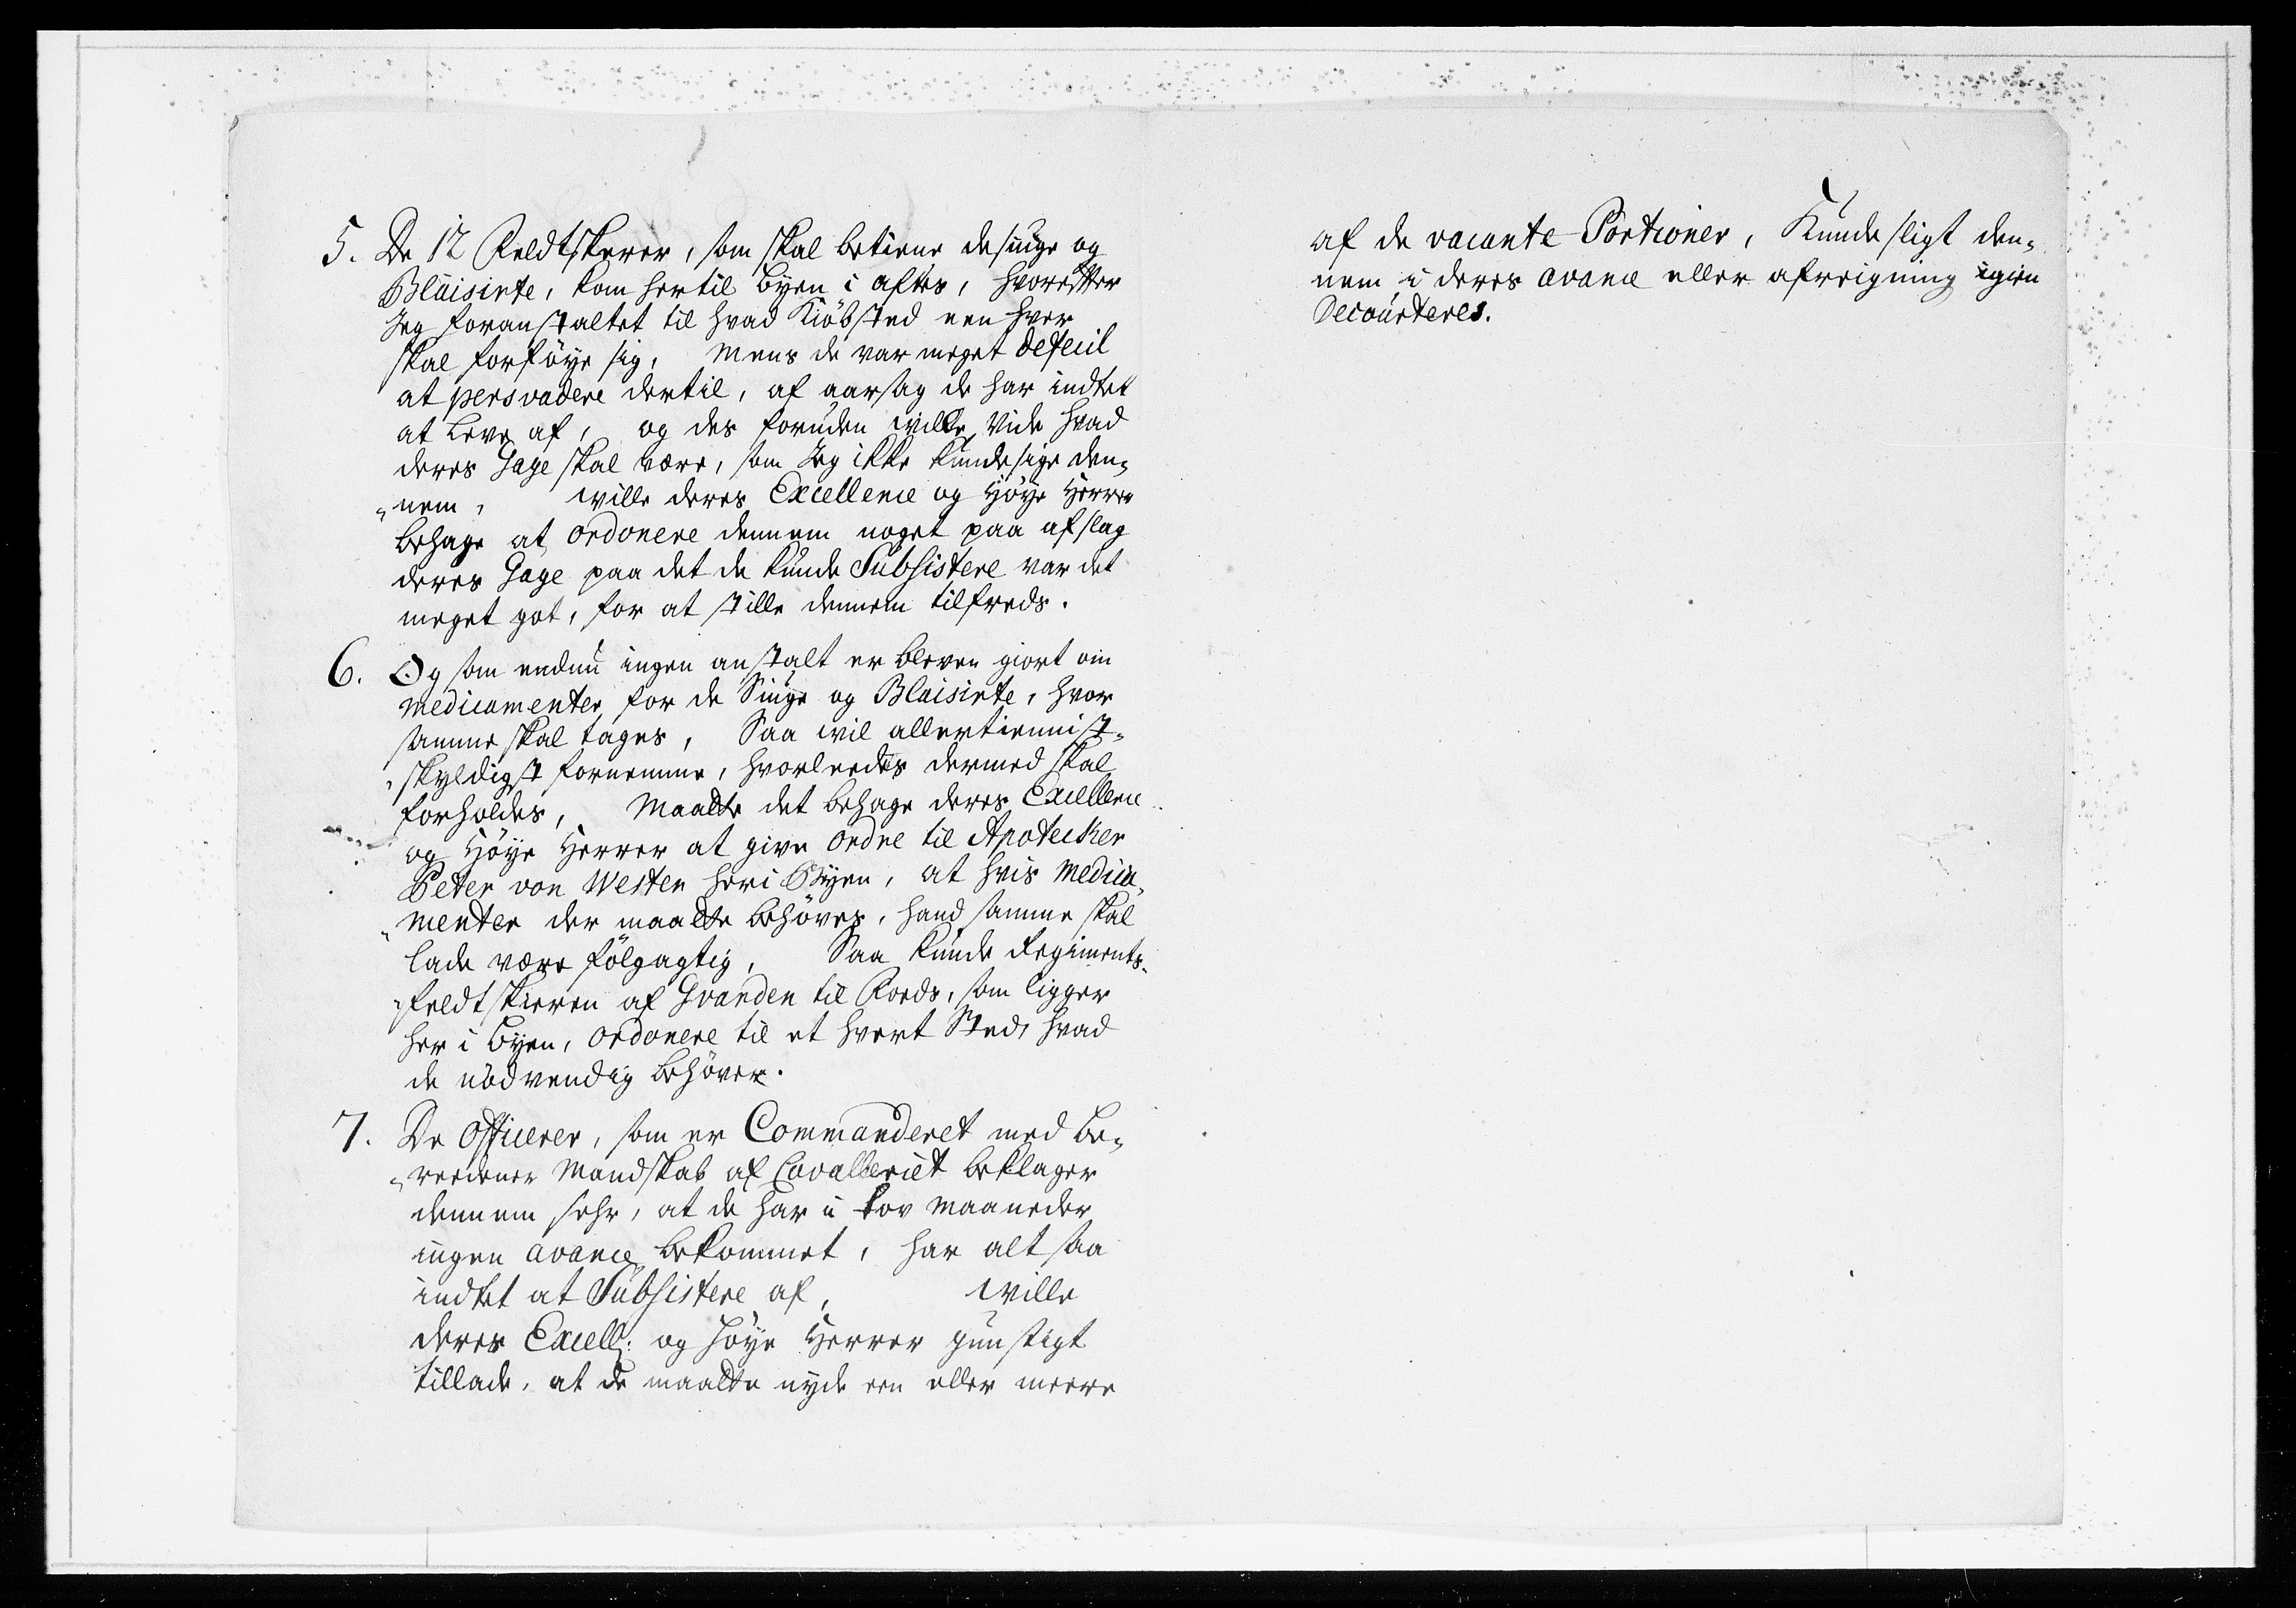 5. De 12 Feldtskerer, som skal betiene de siuge og
Blaisirte, kom hertil byen i aftes, hvorefter
Jeg foranstaltet til hvad Kiöbsted een hver
skal forföye sig, Mens de var meget deficil
at persvadere dertil, af aarsag de har indtet
at Leve af, og des foruden wille vide hvad
deres Gage skal være, som Jeg ikke kunde sige den-
-nem, wille deres Excellence og Höye Herrer
behage at ordonere dennem noget paa afslag
deres Gage paa det de kunde Subsistere var det
meget got, for at stille dennem tilfreds.
6. Og som endnu ingen anstalt er bleven giort om
Medicamenter for de Siuge og Blaisirte, hvor
samme skal tages, Saa wil allertienist-
-skyldigst fornemme, hvorleedes dermed skal
forholdes, Maatte det behage deres Excellence
og Höye Herrer at give ordre til Apotecker
Peter von Westen her i Byen, at hvis Medica-
-menter der maatte behöves, hand samme skal
lade være fölgagtig, Saa kunde Regiments-
-feldtskieren af Gvarden til Foeds, som ligger
her i Byen, ordonere til et hvert Sted, hvad
de nödvendig behöver.
7. De Officerer, som er Commanderet med be-
-reedene Mandskab af Cavalleriet beklager
dennem sehr, at de har i tov Maaneder
ingen avance bekommet, har alt saa
indtet at Subsistere af, wille
deres Excell: og höye Herrer gunstigt
tillade, at de maatte nyde een eller meere
af de vacante Portioner, Kunde sligt den-
nem i deres avance eller afreigning igien
Decourteres.